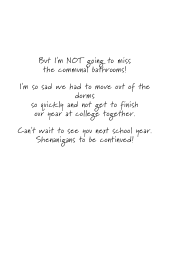 But I'm NOT going to miss
the communal bathrooms!
I'm so sad we had to move out of the
dorms
so quickly and not get to finish
our year at college together.
Can't wait to see you next school year.
Shenanigans to be continued!